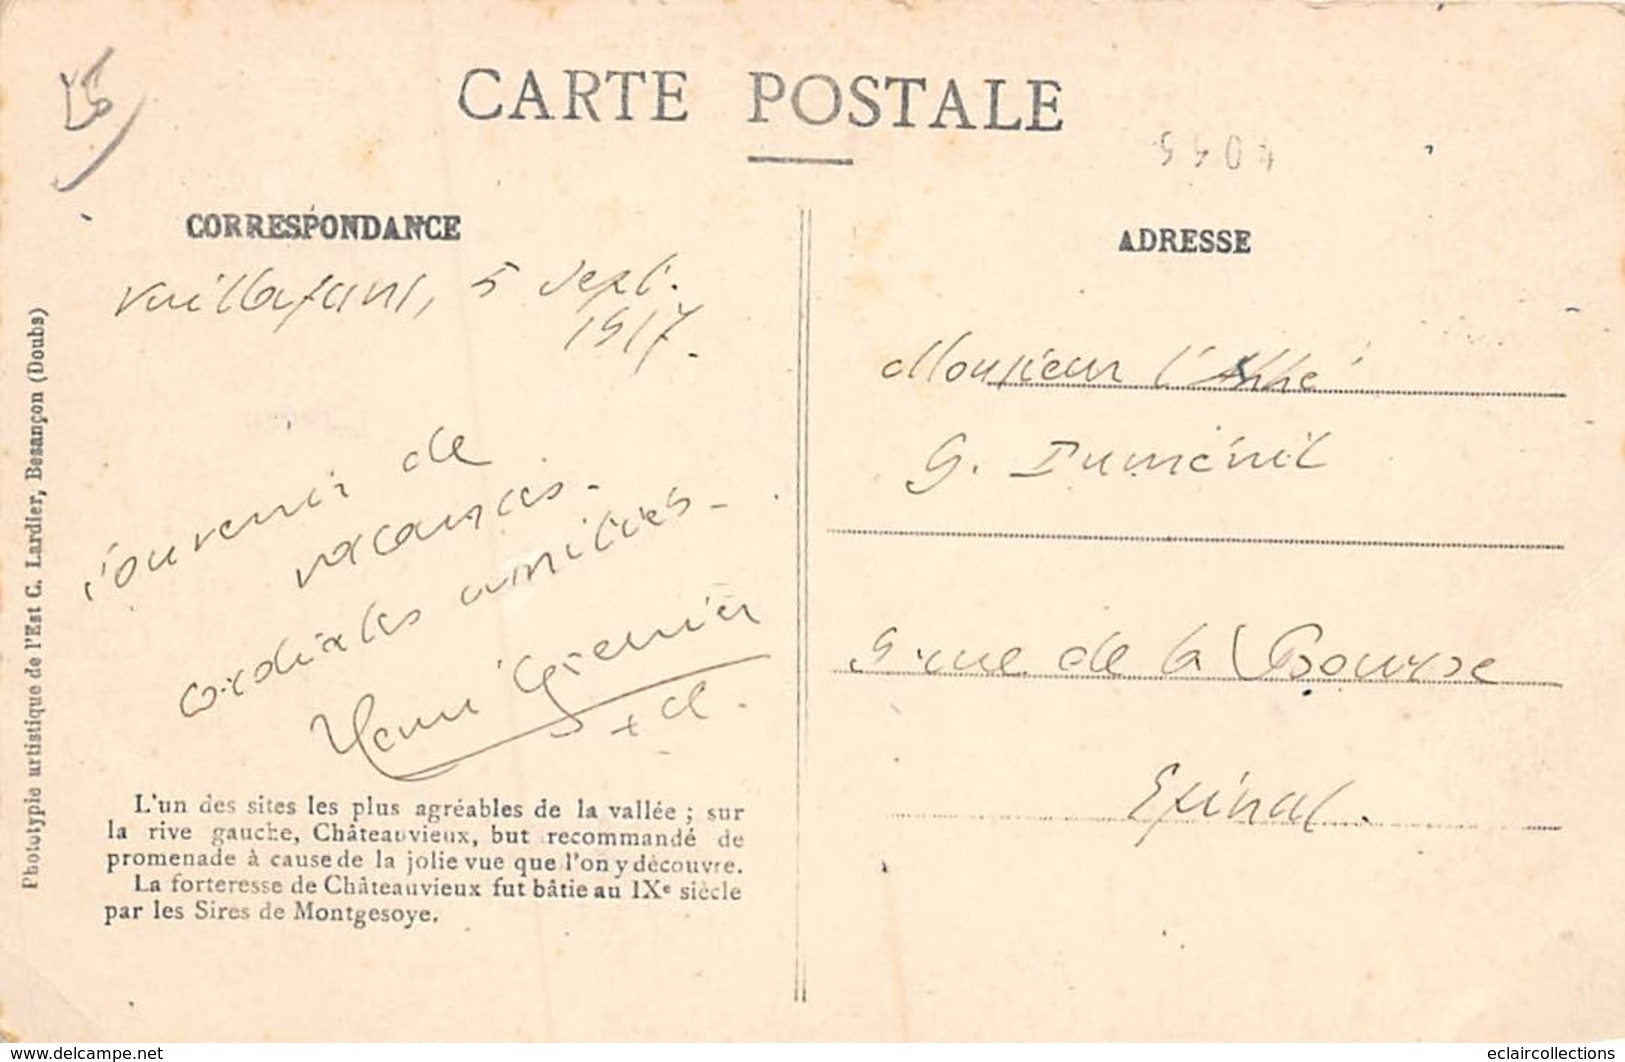 CARTE POSTALE
CORRESPONDANCE
Vuillafans, 5 Sept.
1917.
Souvenir de
vacances.
cordiales amitiés.
Henri Grenier
ADRESSE
Monsieur l'Abbé
G. Duménil
9 rue de la Bourse
Epinal.
L'un des sites les plus agréables de la vallée ; sur
la rive gauche, Châteauvieux, but recommandé de
promenade à cause de la jolie vue que l'on y découvre.
La forteresse de Châteauvieux fut bâtie au IXe siècle
par les Sires de Montgesoye.
Phototypie artistique de l'Est C. Lardier, Besançon (Doubs)
www.delcampe.net
eclaircollections